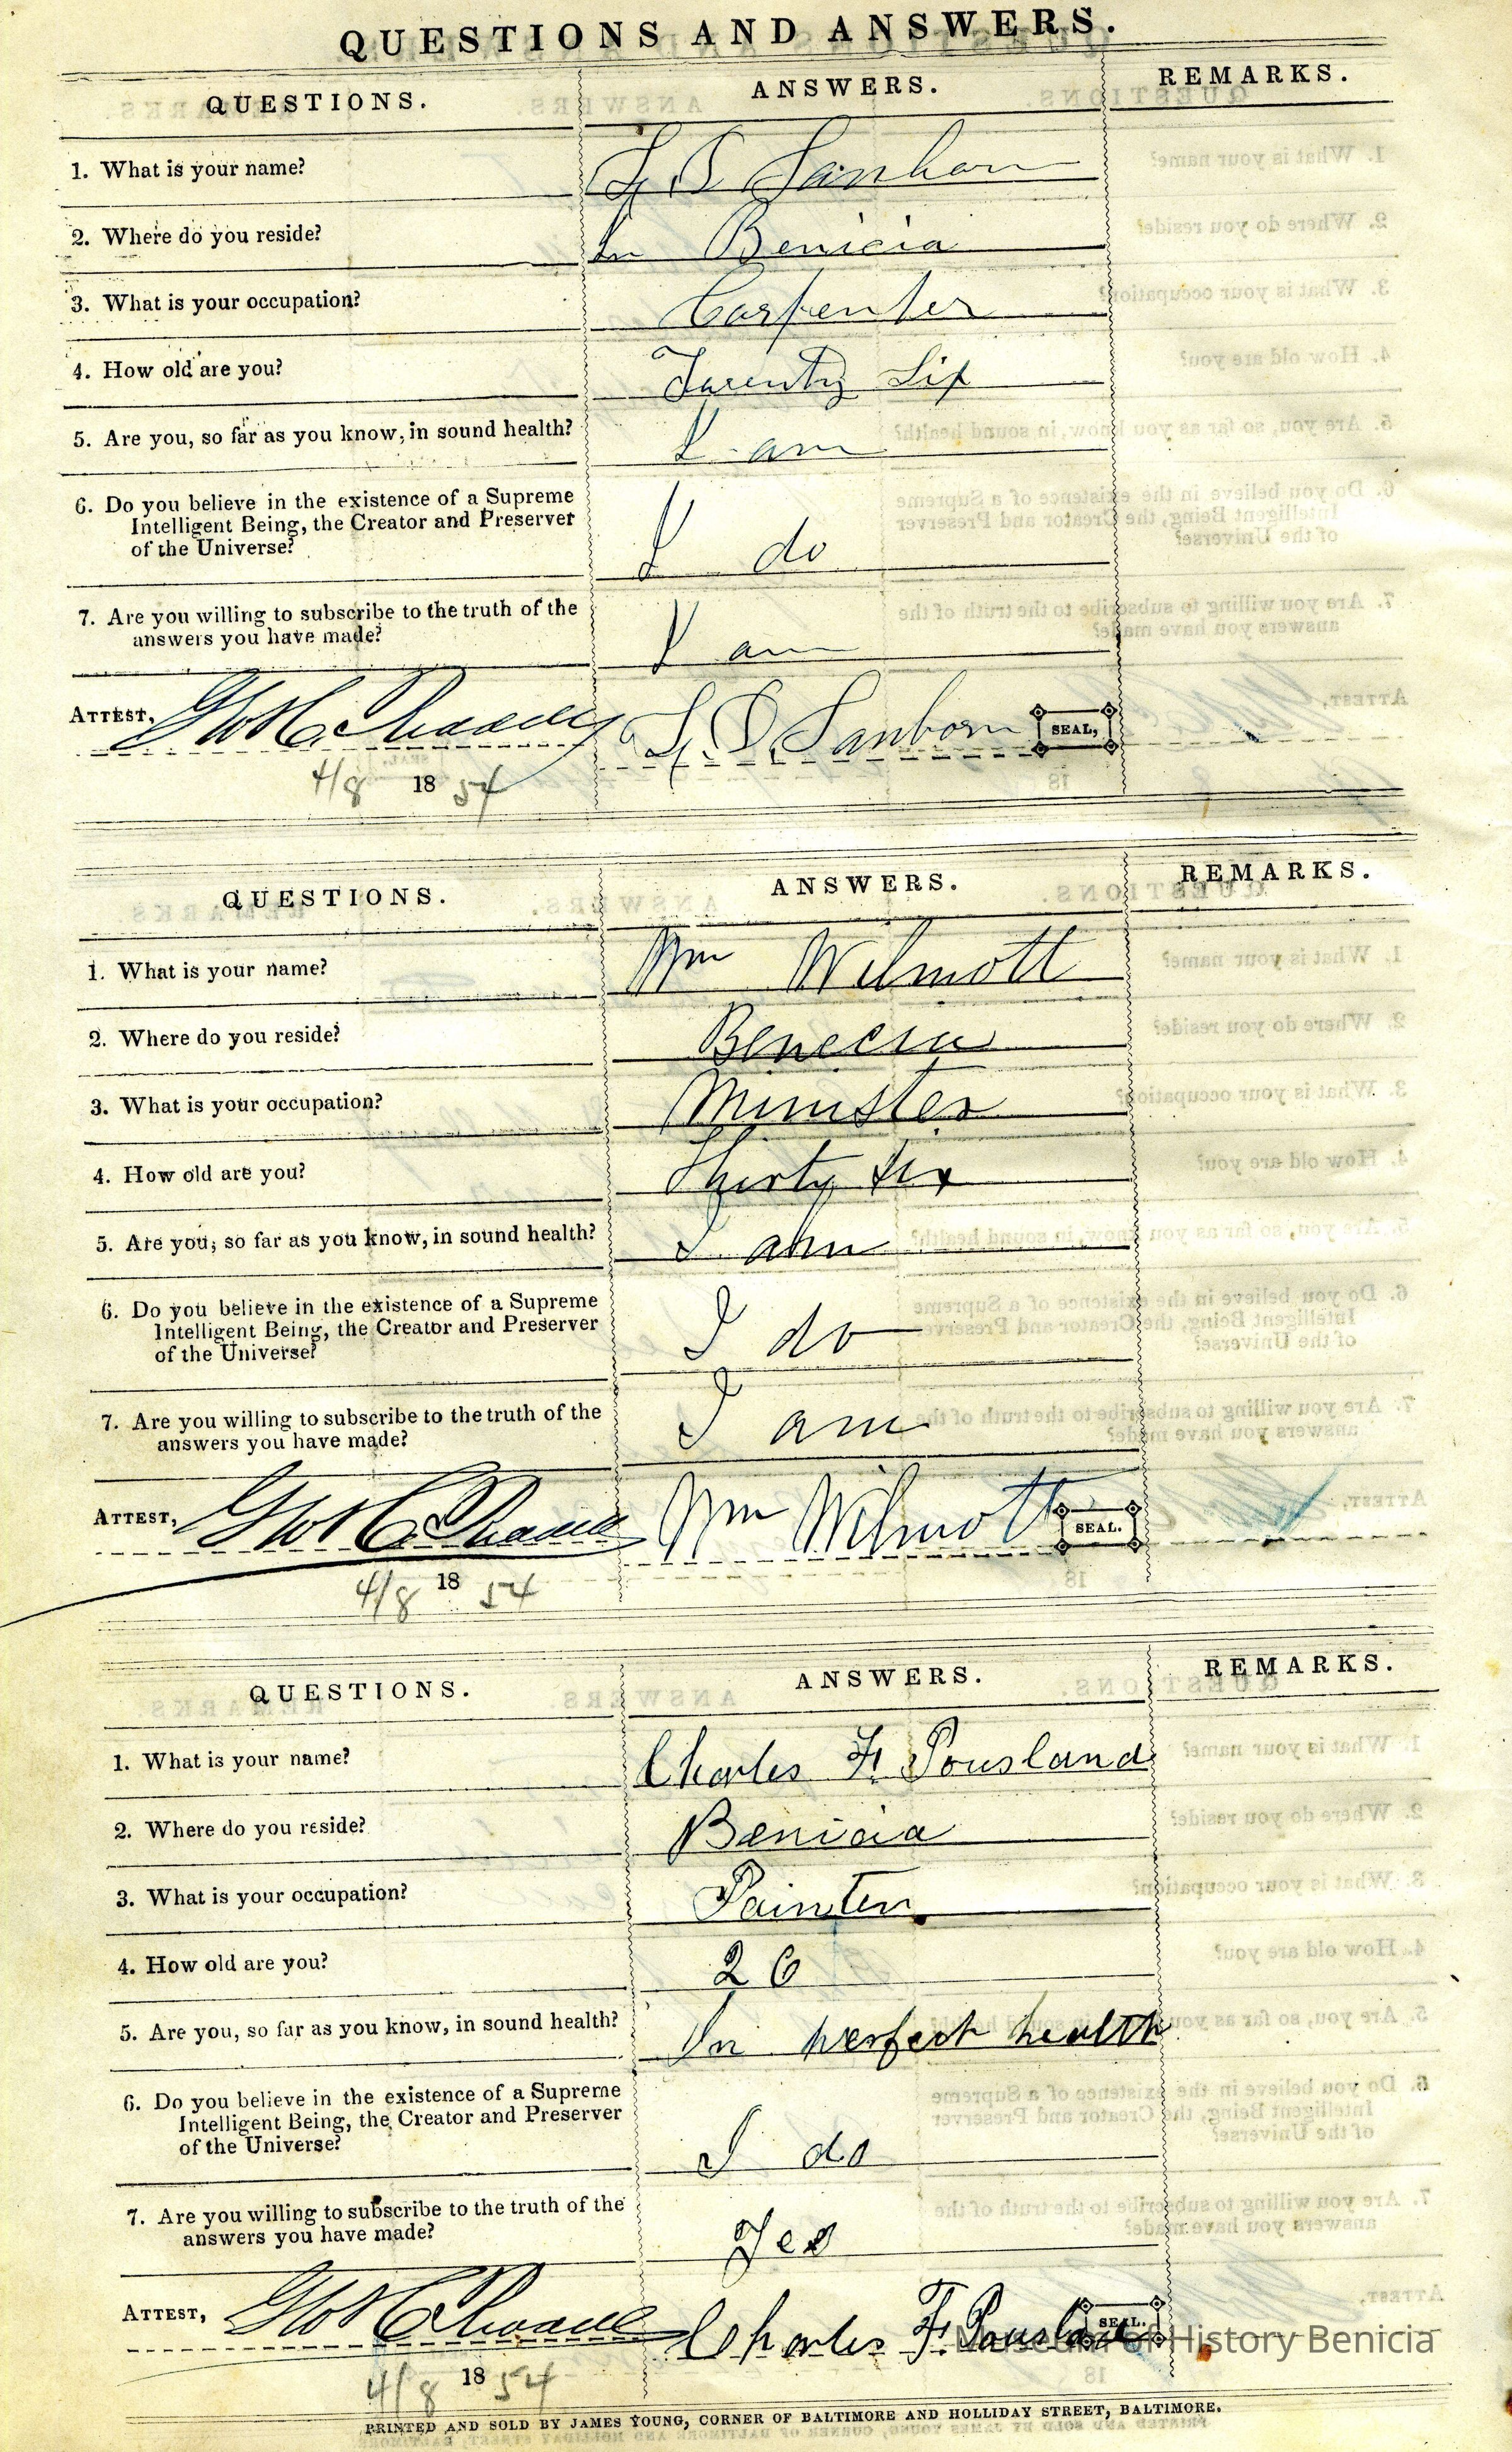 QUESTIONS AND ANSWERS.
QUESTIONS. ANSWERS. REMARKS.
1. What is your name? Sanborn
2. Where do you reside? In Benicia
3. What is your occupation? Carpenter
4. How old are you? Twenty Six
5. Are you, so far as you know, in sound health? I am
6. Do you believe in the existence of a Supreme
Intelligent Being, the Creator and Preserver
of the Universe? I do
7. Are you willing to subscribe to the truth of the
answers you have made? I am
ATTEST, Sanborn SEAL,
4/8 1854
QUESTIONS. ANSWERS. REMARKS.
1. What is your name? Wm Wilmott
2. Where do you reside? Benecia
3. What is your occupation? Minister
4. How old are you? Thirty Six
5. Are you, so far as you know, in sound health? I am
6. Do you believe in the existence of a Supreme
Intelligent Being, the Creator and Preserver
of the Universe? I do
7. Are you willing to subscribe to the truth of the
answers you have made? I am
ATTEST, Wm Wilmott SEAL.
4/8 1854
QUESTIONS. ANSWERS. REMARKS.
1. What is your name? Charles F. Pousland
2. Where do you reside? Benicia
3. What is your occupation? Painter
4. How old are you? 26
5. Are you, so far as you know, in sound health? In perfect health
6. Do you believe in the existence of a Supreme
Intelligent Being, the Creator and Preserver
of the Universe? I do
7. Are you willing to subscribe to the truth of the
answers you have made? Yes
ATTEST, Charles F. Pousland SEAL.
Museum of History Benicia
4/8 1854
PRINTED AND SOLD BY JAMES YOUNG, CORNER OF BALTIMORE AND HOLLIDAY STREET, BALTIMORE.